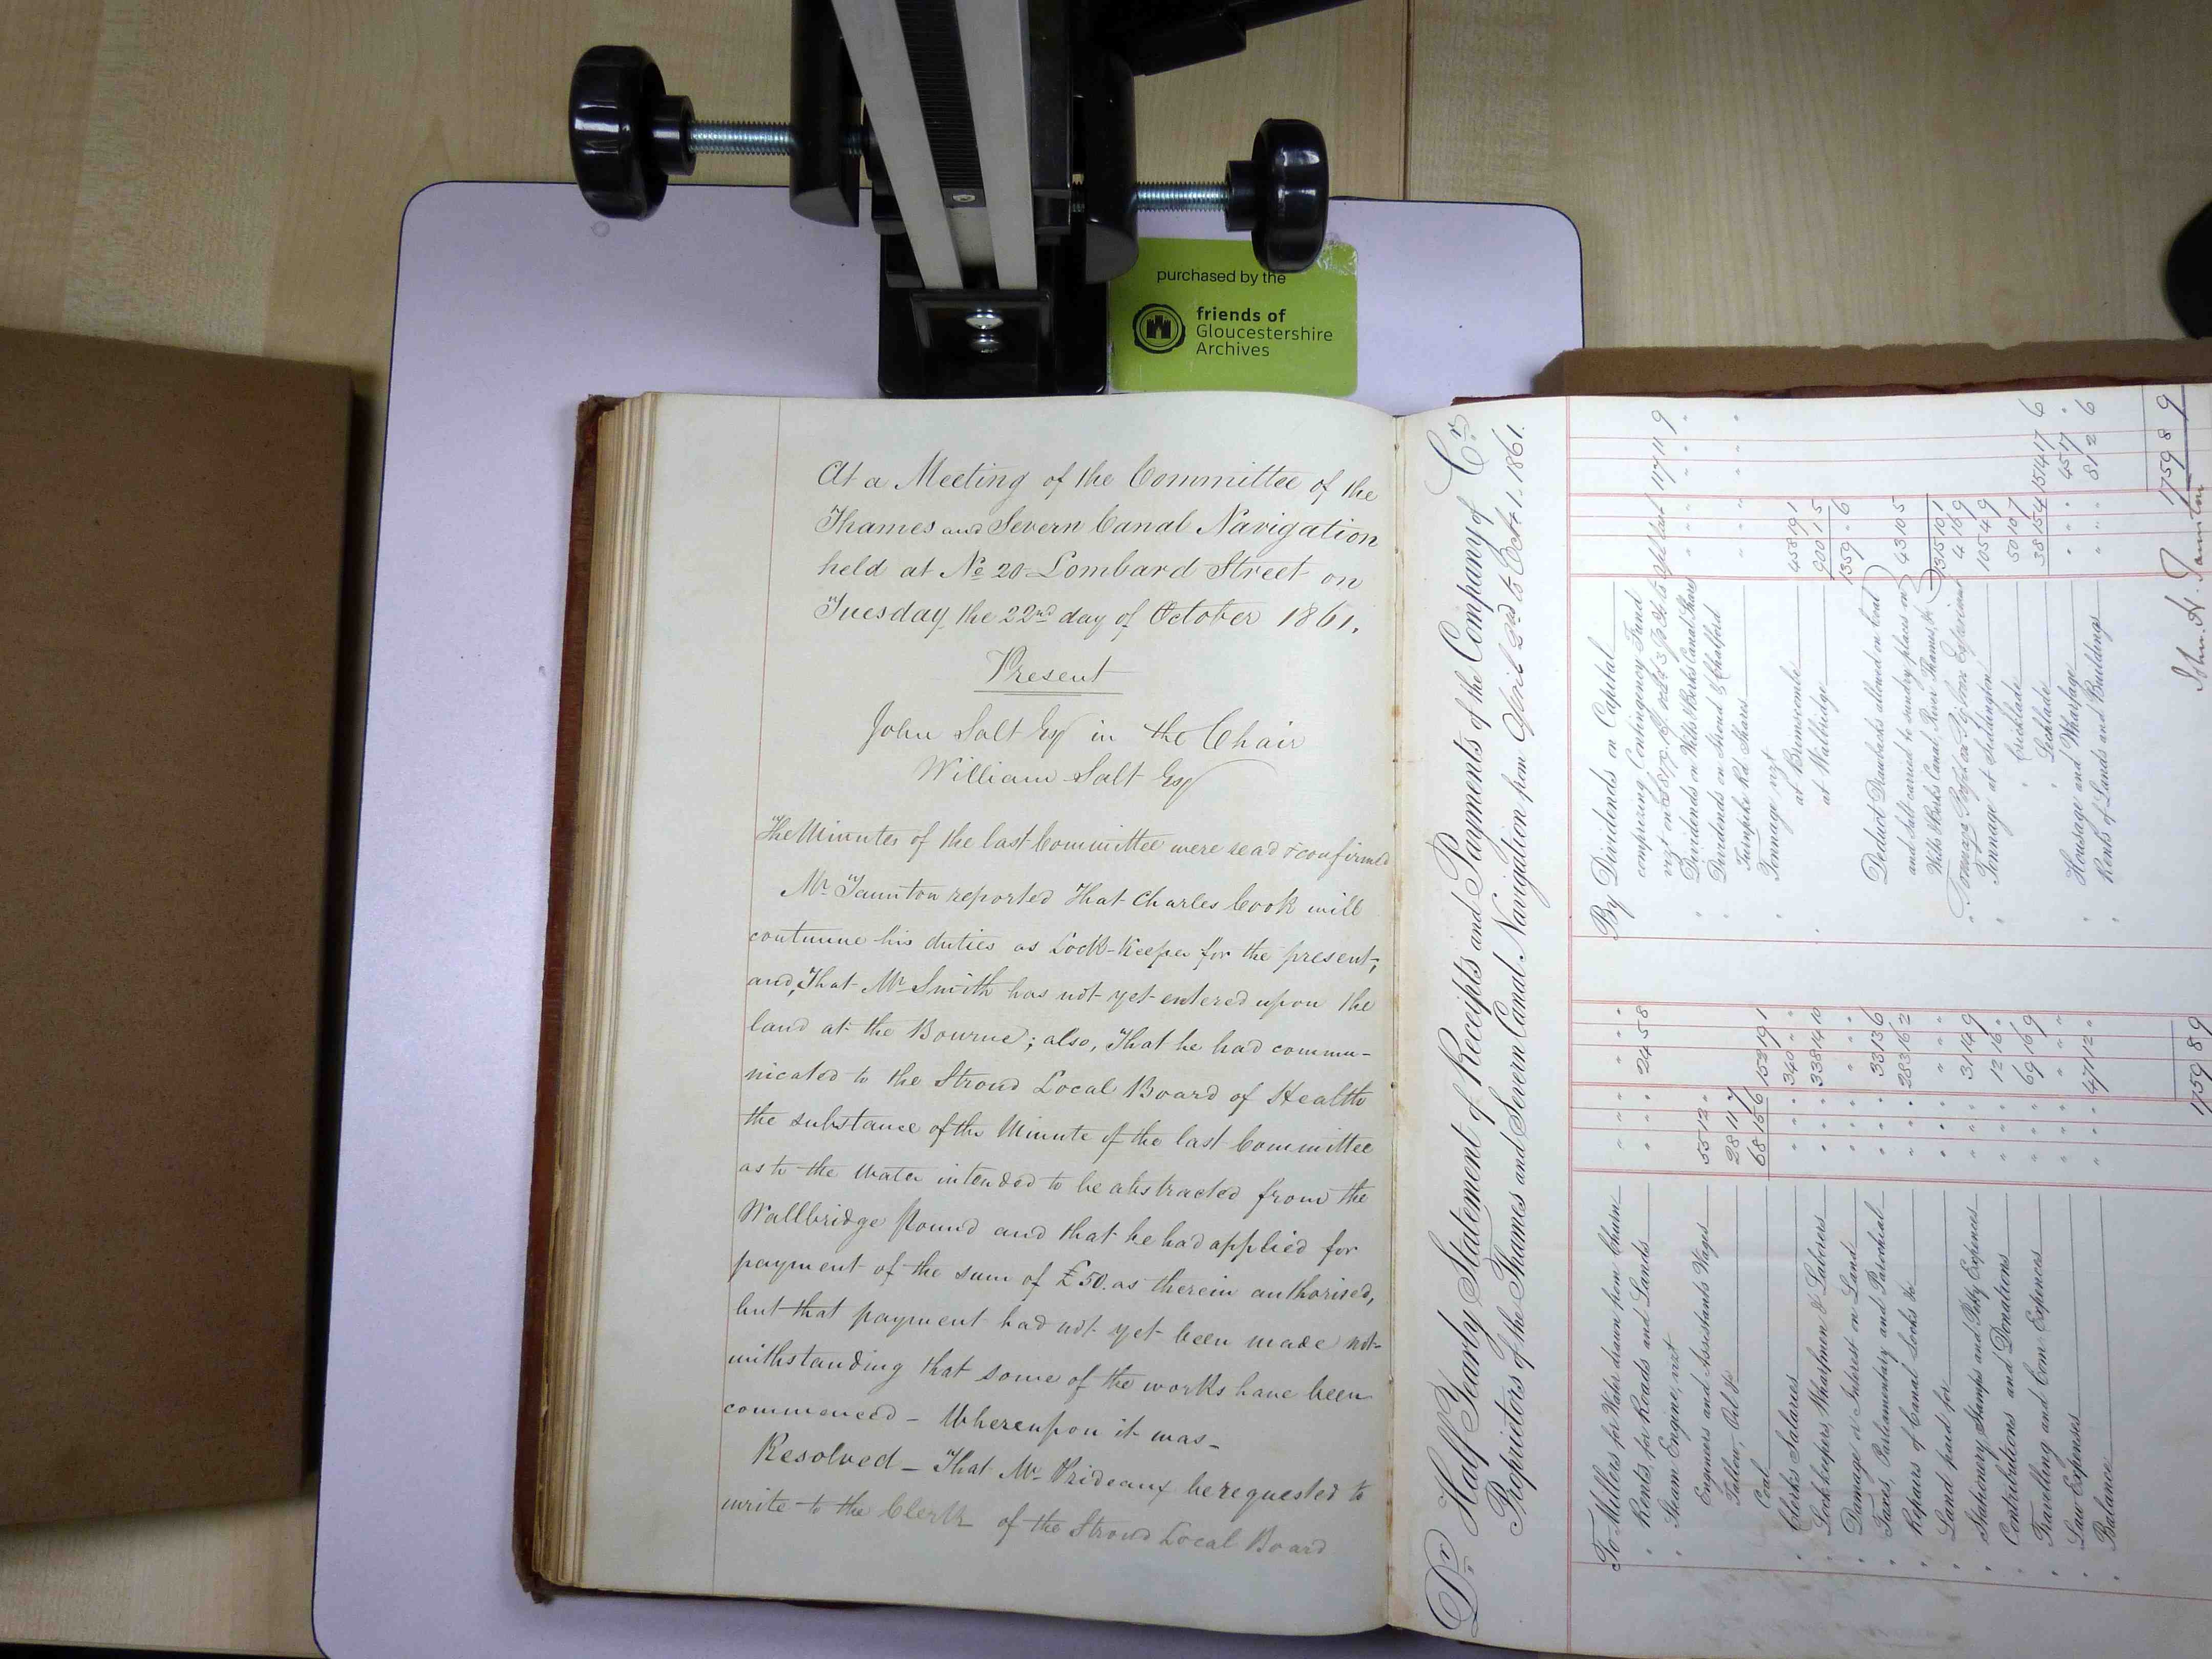 purchased by the
friends of
Gloucestershire
Archives
At a Meeting of the Committee of the
Thames and Severn Canal Navigation
held at No 20 Lombard Street on
Tuesday the 22nd day of October 1861.
Present
John Salt Esq in the Chair
William Salt Esq
The Minutes of the last Committee were read & confirmed
Mr Taunton reported That Charles Cook will
continue his duties as Lock-Keeper for the present;
and, That Mr Smith has not yet entered upon the
land at the Bourne; also, That he had commu-
nicated to the Stroud Local Board of Health
the substance of the Minute of the last Committee
as to the Water intended to be abstracted from the
Wallbridge Pound and that he had applied for
payment of the sum of £50. as therein authorised,
but that payment had not yet been made not-
withstanding that some of the works have been
commenced - Whereupon it was -
Resolved - That Mr Prideaux be requested to
write to the Clerk of the Stroud Local Board
Dr Half Yearly Statement of Receipts and Payments of the Company of Cr
Proprietors of the Thames and Severn Canal Navigation from April 2nd to Octr 1. 1861.
To Millers for Water drawn from Churn
" Rents, for Roads and Lands 24 5 8
" Steam Engine, vizt
Engineers and Assistants Wages 55 12 "
Tallow, Oil &c 28 11 7
Coal 68 15 6 152 19 1
" Clerks Salaries 340 " "
" Lockkeepers, Wharfmen & Laborers 338 14 10
" Damage or Interest on Land
" Taxes, Parliamentary and Parochial 33 13 6
" Repairs of Canal Locks &c 283 16 2
" Land paid for
" Stationery, Stamps and Petty Expences 31 14 9
" Contributions and Donations 12 16 "
" Travelling and Com: Expences 69 16 9
" Law Expenses
" Balance 471 12 "
1759 8 9
By Dividends on Capital
comprizing Contingency Fund
117 11 9
" Dividends on Wilts & Berks Canal Shares
" Dividends on Stroud & Chalford
Turnpike Rd Shares
" Tonnage vizt
at Brimscombe 458 19 1
at Walbridge 900 1 5
1359 " 6
Deduct Drawbacks allowed on Coal
and Salt carried to sundry places on
Wilts & Berks Canal, River Thames, &c 43 10 5
1315 10 1
4 16 9
" Tonnage at Siddington 105 4 9
" Cricklade 50 10 7
" Lechlade 38 15 4 1514 17 6
" Housage and Wharfage 45 17 "
" Rents of Lands and Buildings 81 2 6
1759 8 9
John H. Taunton